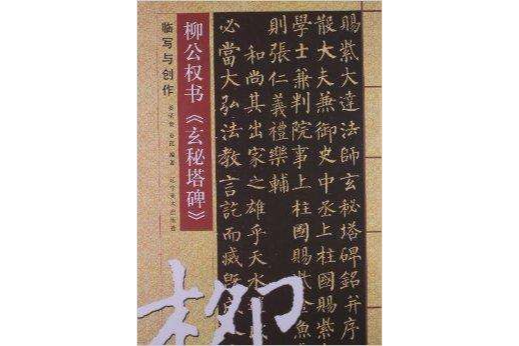 柳公权书《玄秘塔碑》
临写与创作
賜紫大達法師玄秘塔碑銘并序
散大夫兼御史中丞上柱國賜紫
學士兼判院事上柱國賜紫金魚
則張仁義禮樂輔
和尚其出家之雄乎天水
必當大弘法教言訖而滅
柳